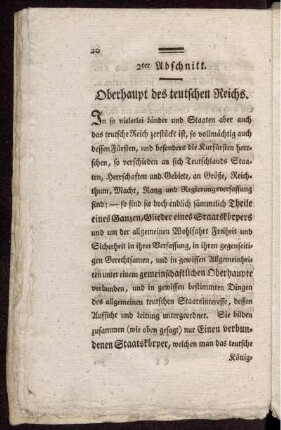 20
2ter Abschnitt.
Oberhaupt des teutschen Reichs.
In so vielerlei Länder und Staaten aber auch
das teutsche Reich zerstückt ist, so vollmächtig auch
dessen Fürsten, und besonders die Kurfürsten herr-
schen, so verschieden an sich Teutschlands Staa-
ten, Herrschaften und Gebiete, an Größe, Reich-
thum, Macht, Rang und Regierungsverfassung
sind: — so sind sie doch endlich sämmtlich Theile
eines Ganzen, Glieder eines Staatskörpers
und um der allgemeinen Wohlfahrt Freiheit und
Sicherheit in ihrer Verfassung, in ihren gegenseiti-
gen Gerechtsamen, und in gewissen Allgemeinhei-
ten unter einem gemeinschaftlichen Oberhaupte
verbunden, und in gewissen bestimmten Dingen
des allgemeinen teutschen Staatsinteresse, dessen
Aufsicht und Leitung untergeordnet. Sie bilden
zusammen (wie oben gesagt) nur Einen verbun-
denen Staatskörper, welchen man das teutsche
König-